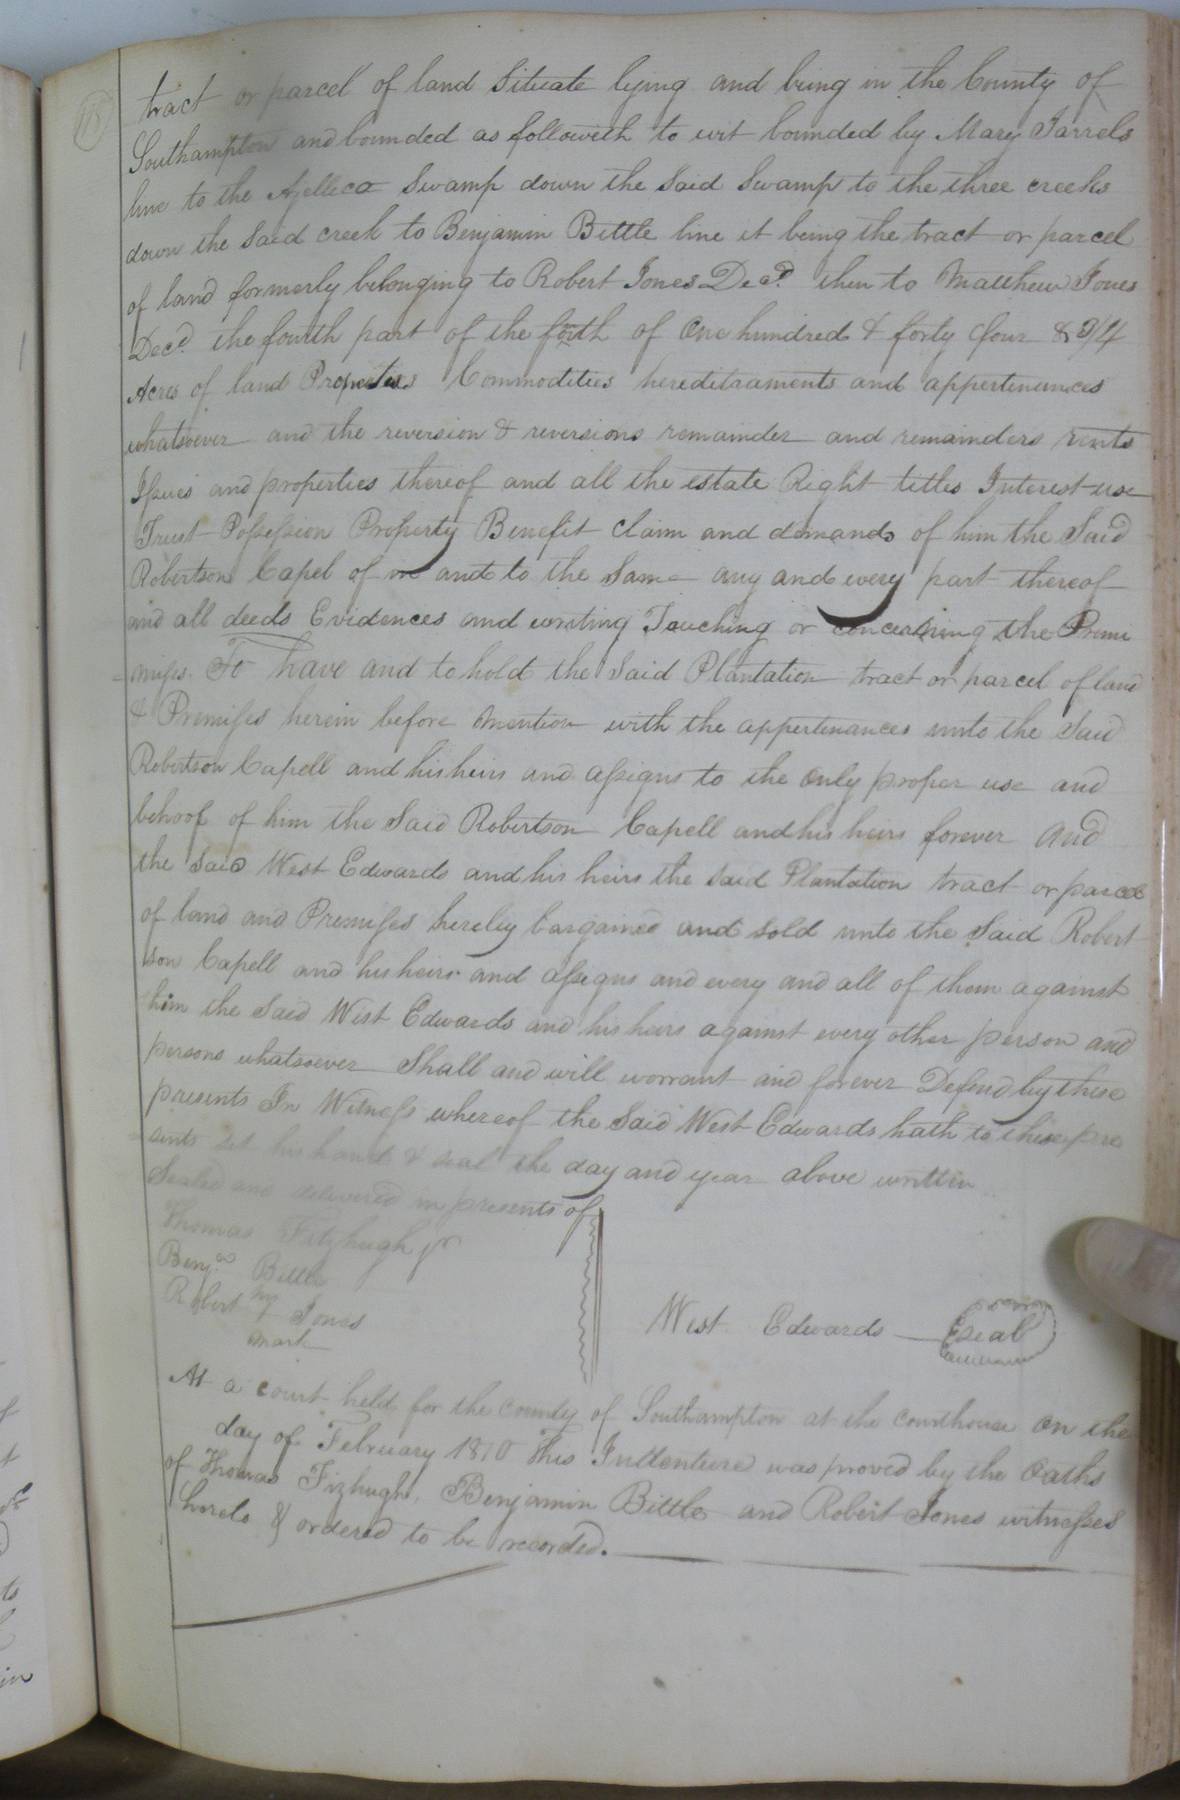 118
tract or parcel of land Situate lying and being in the County of
Southampton and bounded as followeth to wit bounded by Mary Jarrels
line to the Swamp down the Said Swamp to the three creeks
down the Said creek to Benjamin Bittle line it being the tract or parcel
of land formerly belonging to Robert Jones Decd. then to Matthew Jones
Decd. the fourth part of the forth of One hundred & forty four & 3/4
Acres of land Properties Commodities hereditraments and appertenances
whatsoever and the reversion & reversions remainder and remainders rents
Issues and properties thereof and all the estate Right titles Interest use
Trust Possession Property Benefit Claim and demands of him the Said
Robertson Capel of in and to the Same any and every part thereof
and all deeds Evidences and writing Touching or concerning the Premi
misses. To have and to hold the Said Plantation tract or parcel of land
& Premisses herein before Mention with the appertenances unto the Said
Robertson Capell and his heirs and assigns to the Only proper use and
behoof of him the Said Robertson Capell and his heirs forever And
the said West Edwards and his heirs the said Plantation tract or parcel
of land and Premisses hereby bargained and sold unto the Said Robert
son Capell and his heirs and assigns and every and all of them against
him the Said West Edwards and his heirs against every other person and
persons whatsoever Shall and will worrant and forever Defend by these
presents In Witness whereof the Said West Edwards hath to these pre
sents set his hand & seal the day and year above written
Sealed and delivered in presents of
Thomas Fitzhugh jr
Benjn Bittle
Robert his Jones
mark
West Edwards Seal
At a court held for the county of Southampton at the courthouse on the
day of February 1810 This Indenture was proved by the Oaths
of Thomas Fizhugh, Benjamin Bittle and Robert Jones witnesses
hereto & ordered to be recorded.